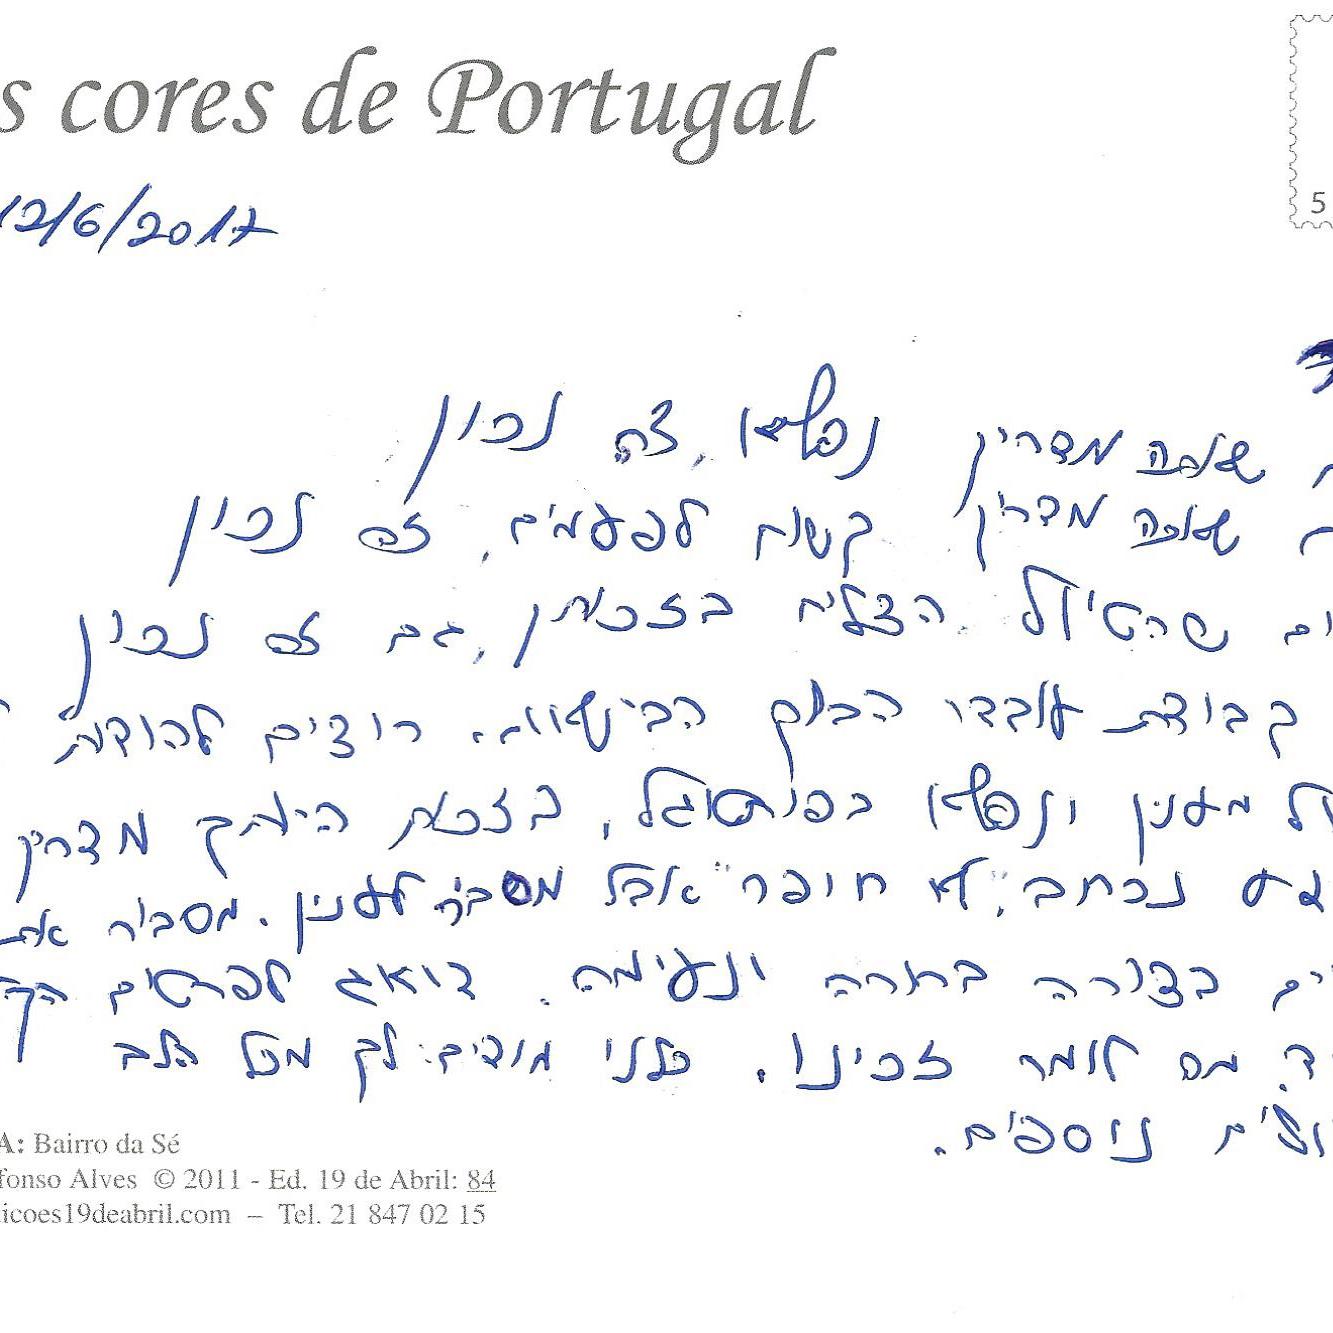 s cores de Portugal
12/6/2017
5
שאתה מדריך נפלא, זה נכון
שאתה מדריך קשוח לפעמים, זה נכון
ים שהטיול הצליח בזכותך, גם זה נכון
קבוצת עובדי הבנק רוצים להודות
ול מענין ונפלא בפורטוגל, בזכות היותך מדריך
נכתב, "לא חופר" אבל מסביר לענין. מסביר את
ים בצורה ברורה ונעימה. דואג לפרטים
ד. מה לומר זכינו. כולנו מודים לך מכל הלב
נוספים.
A: Bairro da Sé
fonso Alves © 2011 - Ed. 19 de Abril: 84
icoes19deabril.com – Tel. 21 847 02 15